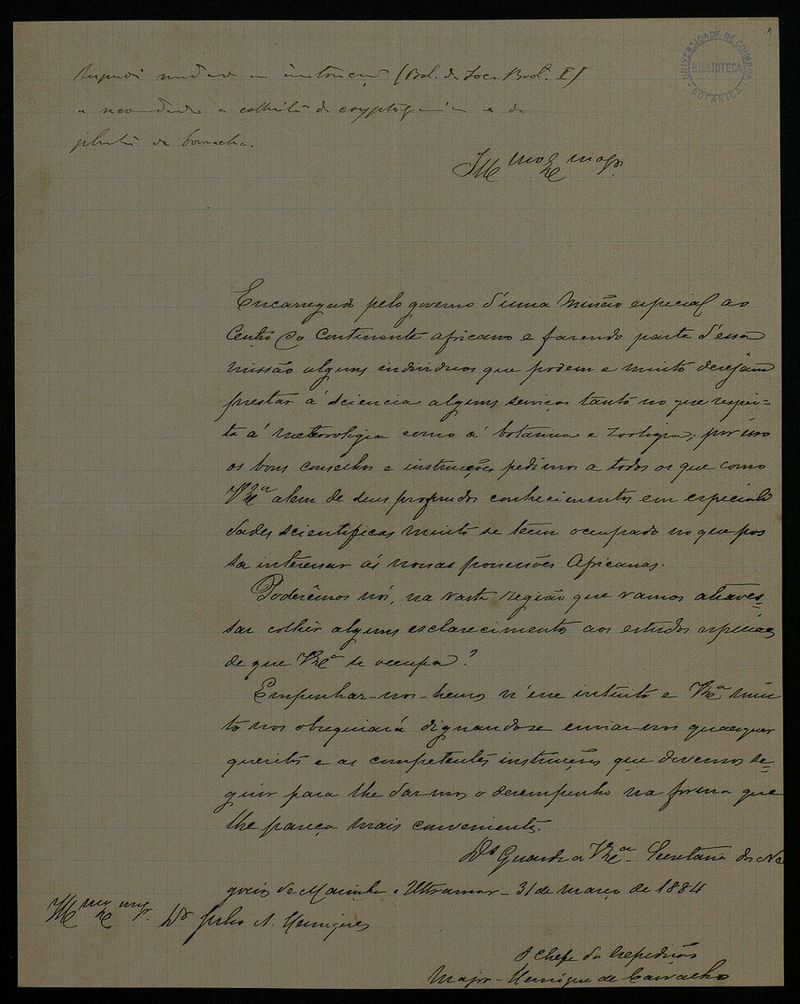 1
UNIVERSIDADE DE COIMBRA
BIBLIOTECA
BOTANICA
Respondi mandando as instrucções (Bol. da Soc. Brot. I)
e recomendando a colheita de cryptogamicas e da
planta da borracha.
Illmo Exmo Snr.
Encarregado pelo governo d'uma Missão especial ao
Centro do Continente africano e fazendo parte d'essa
missão alguns individuos que podem e muito desejam
prestar á sciencia alguns serviços tanto no que respei-
ta á meteorologia como á botanica e zoologia, por isso
os bons conselhos e instrucções pedimos a todos os que como
VExa alem de seus profundos conhecimentos em especiali
dades scientificas muito se teem occupado no que pos
sa interessar ás nossas possessões Africanas.
Poderêmos nós, na vasta região que vamos atraves-
sar colher alguns esclarecimentos aos estudos especiaes
de que VExa se occupa?
Empenhar-nos-hemos n'esse intuito e VExa mui
to nos obsequiará dignando-se enviar-nos quaesquer
quesitos e as competentes instrucções que devemos se-
guir para lhe dar-mos o desempenho na forma que
lhe pareça mais conveniente.
Ds Guarde a VExa Secretaria dos Ne
gocios da Marinha e Ultramar - 31 de março de 1884
Illmo Exmo Snr. Dr Julio A. Henriques
O chefe da Expedição
Major Henrique de Carvalho